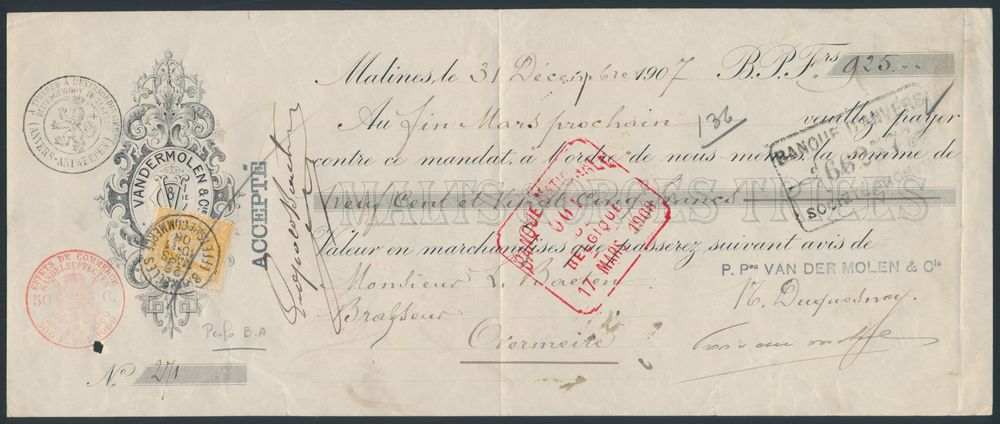 Malines, le 31 Décembre 1907 B.P.Frs 925.
Au fin Mars prochain veuillez payer
136
contre ce mandat, à l'ordre de nous-mêmes, la somme de
MALTS ORGES TRIÉES
neuf Cent et vingt Cinq francs
Valeur en marchandises que passerez suivant avis de
Monsieur L. Baeten
Brasseur
Overmeire
P. Pon VAN DER MOLEN & Cie
N. Duquesnoy.
ACCEPTÉ
VANDERMOLEN & Cie
(ANVERS-ANTWERPEN)
EFFETS DE COMMERCE
HANDELSEFFECTEN
50 C.
Perfo B.A
No 271
BANQUE NATIONALE
BELGIQUE
17 MARS 1908
BANQUE D'ANVERS